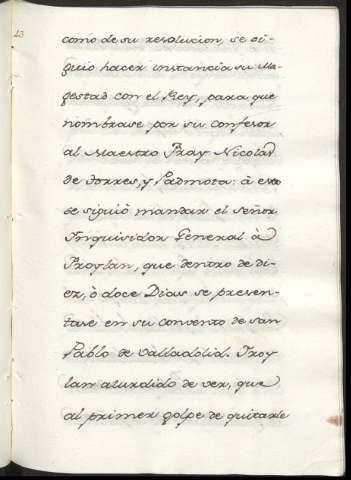 13
como de su resolucion, se si-
guio hacer instancia su Ma-
gestad con el Rey, para que
nombrase por su Confesor
al Maestro Fray Nicolas
de Torres, y Padmota: à esto
se siguiò mandar el señor
Inquisidor General à
Froylan, que dentro de di-
ez, ò doce Dias se presen-
tase en su convento de san
Pablo de Valladolid. Froy-
lan aturdido de ver, que
al primer golpe de quitarle